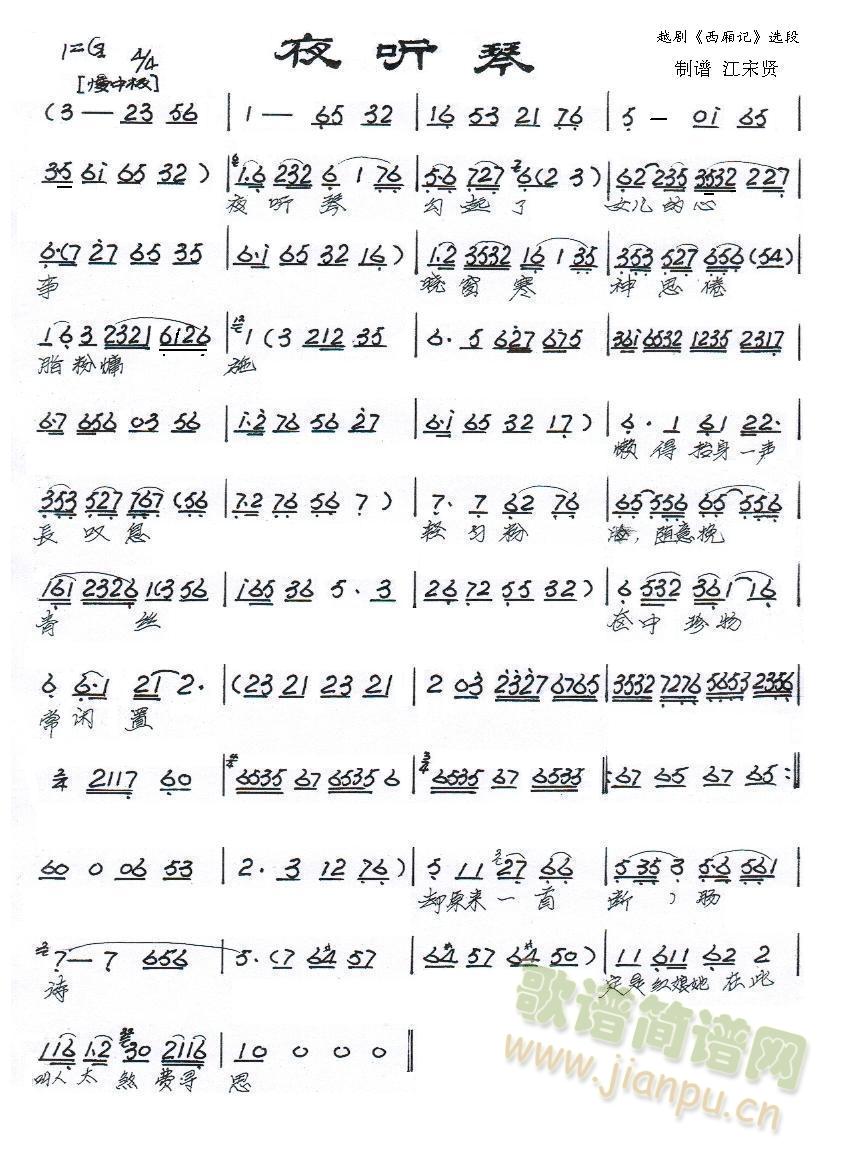 夜听琴
越剧《西厢记》选段
1=G 4/4
制谱 江宋贤
[慢中板]
(3 — 23 56 | 1 — 65 32 | 16 53 21 76 | 5 — 0i 65 |
35 6i 65 32 ) | 1.6 232 6 1 76 | 5.6 727 6(2 3) | 62 235 3532 227 |
夜 听 琴 勾 起 了 女儿 的 心
6.(7 27 65 35 | 6.i 65 32 16 ) | 1.2 3532 16 1 35 | 353 527 656 (54) |
事 晓 窗 寒 神 思 倦
1 6 3 2321 6126 | 1 (3 212 35 | 6. 5 627 675 | 36i 6532 1235 2317 |
脂粉慵 施
6.7 656 03 56 | 1.2 76 56 27 | 6.i 65 32 17 ) | 6. 1 61 22. |
懒 得 抬身 一声
353 527 767 (56 | 7.2 76 56 7 ) | 7. 7 62 76 | 65 556 65 556 |
長 叹 息 轻 匀 粉 随意挽
161 2326 1(3 56 | i65 36 5 . 3 | 26 72 55 32 ) | 6 532 361 16 |
青 丝 奁中 珍物
6 6.1 21 2. | (23 21 23 21 | 2 03 2327 6765 | 3532 7276 5653 2356 |
常闲 置
2/4 2117 60 | 6535 67 6535 6 | 3/4 6535 67 6535 |: 67 65 67 65 :|
60 0 06 53 | 2. 3 12 76 ) | 5 11 27 66 | 5 35 3 5.6 561 |
却原来 一 首 断 肠
7 — 7 656 | 5.(7 6#4 57 | 6#4 57 6#4 50 ) | 11 611 62 2 |
诗 定是红娘她 在此
116 1.2 30 2116 | 10 0 0 0 ||
叫人 太 煞 费寻 思
歌谱简谱网
www.jianpu.cn